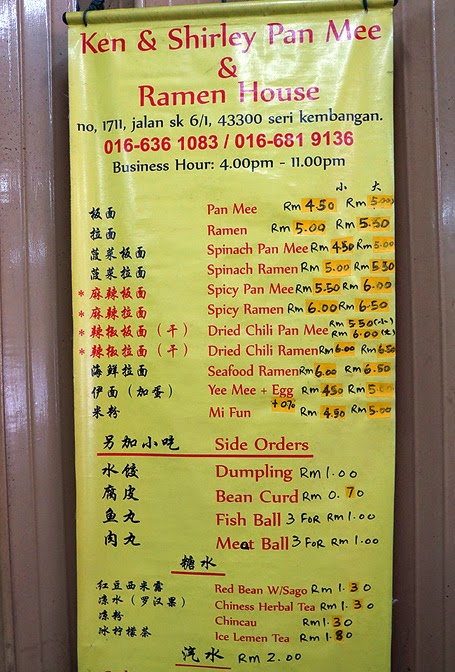 Ken & Shirley Pan Mee
&
Ramen House
no, 1711, jalan sk 6/1, 43300 seri kembangan.
016-636 1083 / 016-681 9136
Business Hour: 4.00pm - 11.00pm
小 大
板面 Pan Mee Rm 4.50 Rm 5.00
拉面 Ramen Rm 5.00 Rm 5.50
菠菜板面 Spinach Pan Mee Rm 4.50 Rm 5.00
菠菜拉面 Spinach Ramen Rm 5.00 Rm 5.50
* 麻辣板面 Spicy Pan Mee Rm 5.50 Rm 6.00
* 麻辣拉面 Spicy Ramen Rm 6.00 Rm 6.50
* 辣椒板面（干） Dried Chili Pan Mee Rm 5.50 (小) Rm 6.00 (大)
* 辣椒拉面（干） Dried Chili Ramen Rm 6.00 Rm 6.50
海鲜拉面 Seafood Ramen Rm 6.00 Rm 6.50
伊面（加蛋） Yee Mee + Egg Rm 4.50 Rm 5.00
米粉 Mi Fun Rm 4.50 Rm 5.00
另加小吃 Side Orders
水饺 Dumpling Rm 1.00
腐皮 Bean Curd Rm 0.70
鱼丸 Fish Ball 3 FOR Rm 1.00
肉丸 Meat Ball 3 FOR Rm 1.00
糖水
红豆西米露 Red Bean W/Sago Rm 1.30
凉水（罗汉果） Chiness Herbal Tea Rm 1.30
凉粉 Chincau Rm 1.30
冰柠檬茶 Ice Lemon Tea Rm 1.80
汽水 Rm 2.00